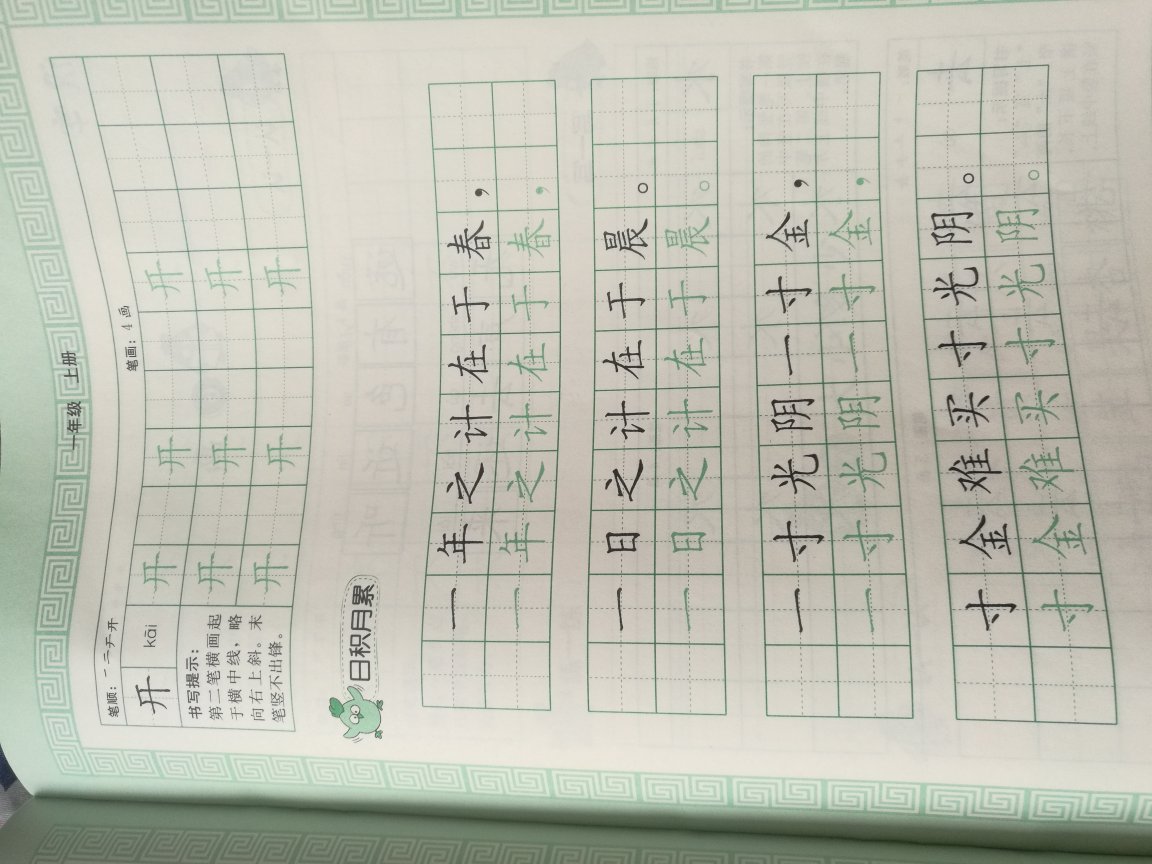 一年级 上册
笔顺：一 二 于 开 笔画：4 画
开 kāi 开 开 开
书写提示：
第二笔横画起
于横中线，略
向右上斜。末
笔竖不出锋。
开 开 开
开 开 开
日积月累
一年之计在于春，
一年之计在于春，
一日之计在于晨。
一日之计在于晨。
一寸光阴一寸金，
一寸光阴一寸金，
寸金难买寸光阴。
寸金难买寸光阴。